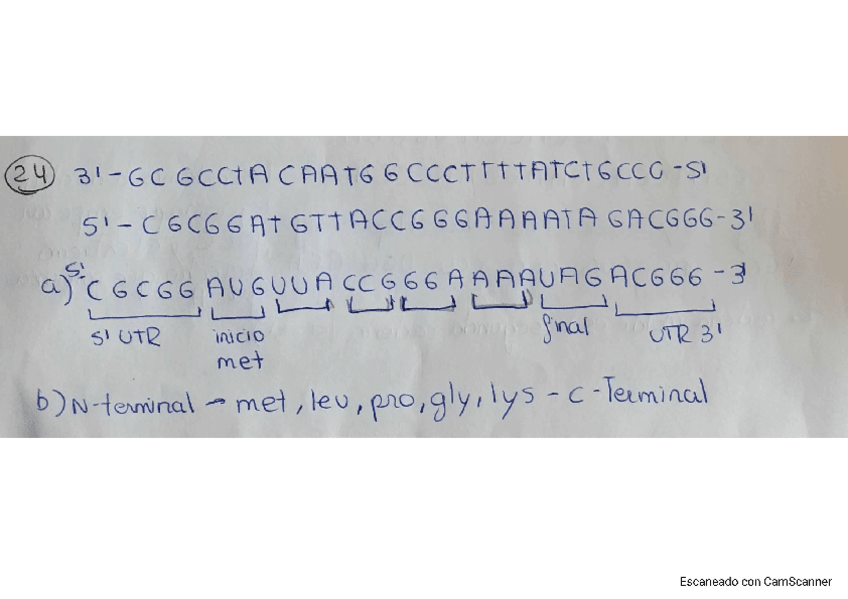 24 3'-GCGCCTACAATGGCCCTTTTATCTGCCG-5'
5'-CGCGGATGTTACCGGGAAAATAGACGGG-3'
a) 5'-CGCGGAUGUUACCGGGAAAAUAGACGGG-3'
5' UTR inicio final UTR 3'
met
b) N-terminal - met, leu, pro, gly, lys - C-Terminal
Escaneado con CamScanner